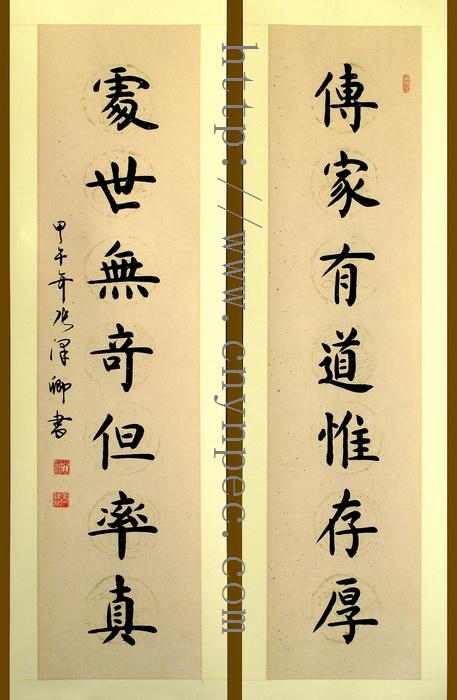 傳家有道惟存厚
處世無奇但率真
甲午年張澤卿書
http://www.cnynpec.com